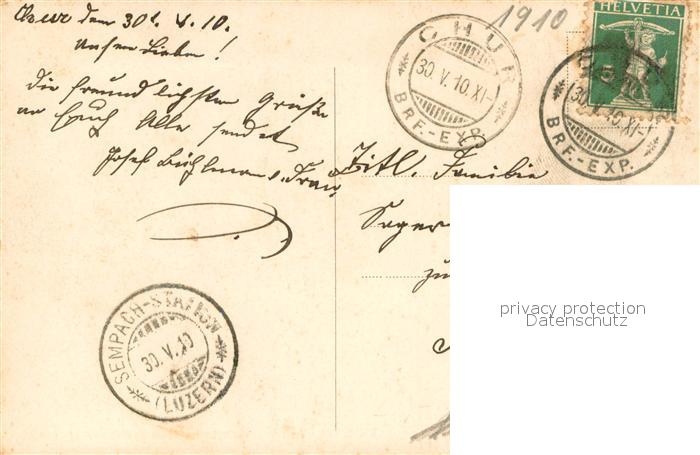 Chur den 30t. 5.10.
Unsere Lieben!
die freundlichsten Grüße
an Euch Alle sendet
Josef Bühlmann u. Frau.
1910
CHUR
30.V.10.XI-
BRF.-EXP.
HELVETIA
5
30.V.10.XI-
BRF.-EXP.
Titl. Familie
Seger
zu
SEMPACH-STATION
30.V.10
(LUZERN)
privacy protection
Datenschutz